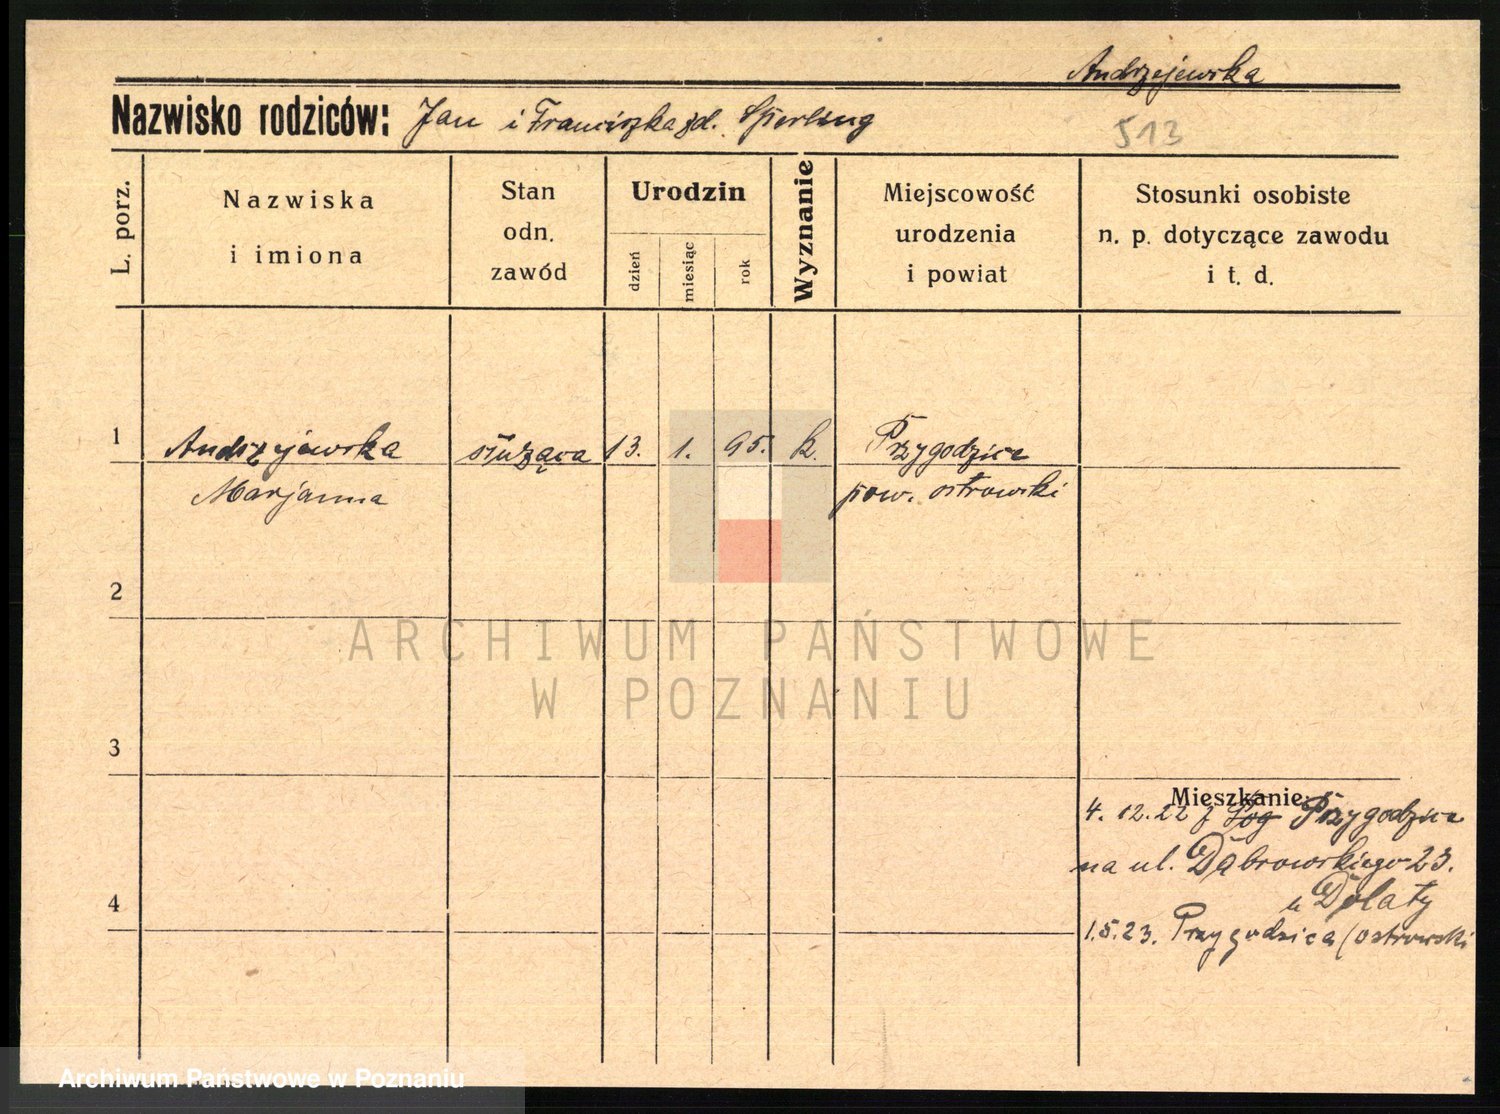 Andrzejewska
Nazwisko rodziców: Jan i Franciszka zd. Spierling
513
L. porz.
Nazwiska
i imiona
Stan
odn.
zawód
Urodzin
dzień
miesiąc
rok
Wyznanie
Miejscowość
urodzenia
i powiat
Stosunki osobiste
n. p. dotyczące zawodu
i t. d.
1 Andrzejewska służąca 13. 1. 95. k. Przygodzice
Marjanna pow. ostrowski
2
ARCHIWUM PAŃSTWOWE
W POZNANIU
3
Mieszkanie:
4. 12. 22 z Pog Przygodzice
na ul. Dąbrowskiego 23.
u Dolaty
4
1.5.23. Przygodzice (ostrowski
Archiwum Państwowe w Poznaniu